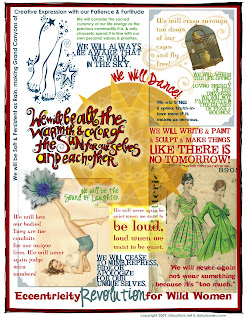 Creative Expression with our Patience & Fortitude
We will be Soft & Persistent as Rain, making Grand Canyons of
We will consider the sacred
currency of our life energy as the
precious commodity it is, & only
choose to spend it in line with our
own personal values & priorities.
WE WILL ALWAYS
BE AWARE THAT
WE WALK
IN THE SKY.
We will crash through
the doors of
our cages
and fly
free!
We Will Dance!
WE WILL SING
it makes us nervous.
We will be all the
warmth & color of
the SUN for our selves
and each other
WE WILL WRITE & PAINT
& SCULPT & MAKE THINGS
LIKE THERE IS
NO TOMORROW!
We will be the
Sound of Laughter
We will love
our bodies!
They are
conduits for
our unique
lives. We will
never again
judge with
numbers!
We will never again be
quiet when we need to
be loud,
loud when we
want to be quiet.
WE WILL CEASE
TO DIMINISH, REPRESS,
HIDE, OR
APOLOGIZE
FOR OUR
UNIQUE SELVES.
We will never again
not wear something
because it's "too much."
Eccentricity Revolution For Wild Women